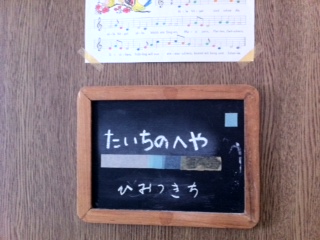 たいちのへや
ひみつきち